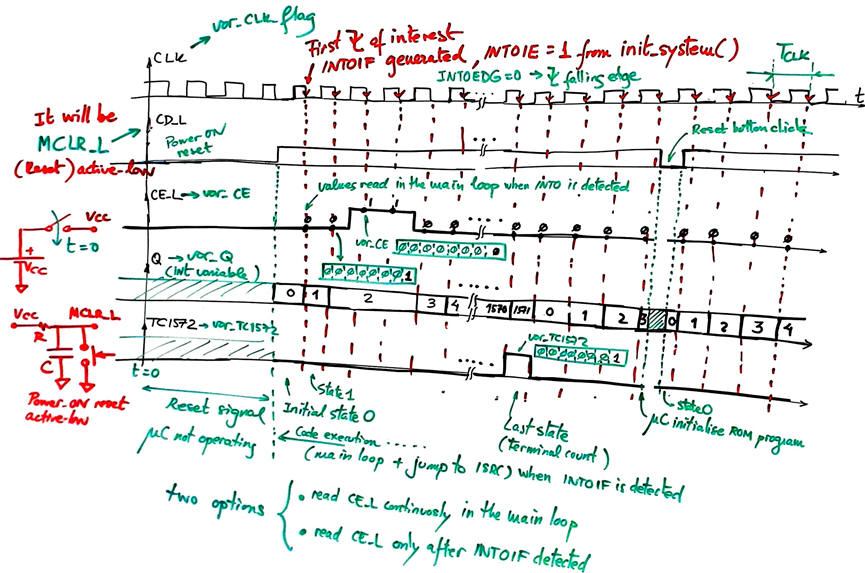 var_CLK_flag
CLK
First ⌉↓ of interest
INT0IF generated, INT0IE = 1 from init_system()
INT0EDG=0 → falling edge
TCLK
t
It will be
MCLR_L
(Reset) active-low
CD_L
Power ON
reset
Reset button click
CE-L → var_CE
values read in the main loop when INT0 is detected
Vcc
t=0
+
Vcc
var_CE
0 0 0 0 0 0 0 0
0 0 0 0 0 0 0 1
Q → var_Q
(int variable)
0 1 2 3 4 1570 1571 0 1 2 3 0 1 2 3 4
Vcc
MCLR_L
R
C
Power_ON reset
active-low
TC1572 → var_TC1572
var_TC1572
0 0 0 0 0 0 0 1
t=0
Reset signal
µC not operating
State 1
Initial state 0
Last state
(terminal count)
state 0
µC initialise ROM program
Code execution ......
(main loop + jump to ISR() when INT0IF is detected
two options
• read CE_L continuosly in the main loop
• read CE_L only after INT0IF detected